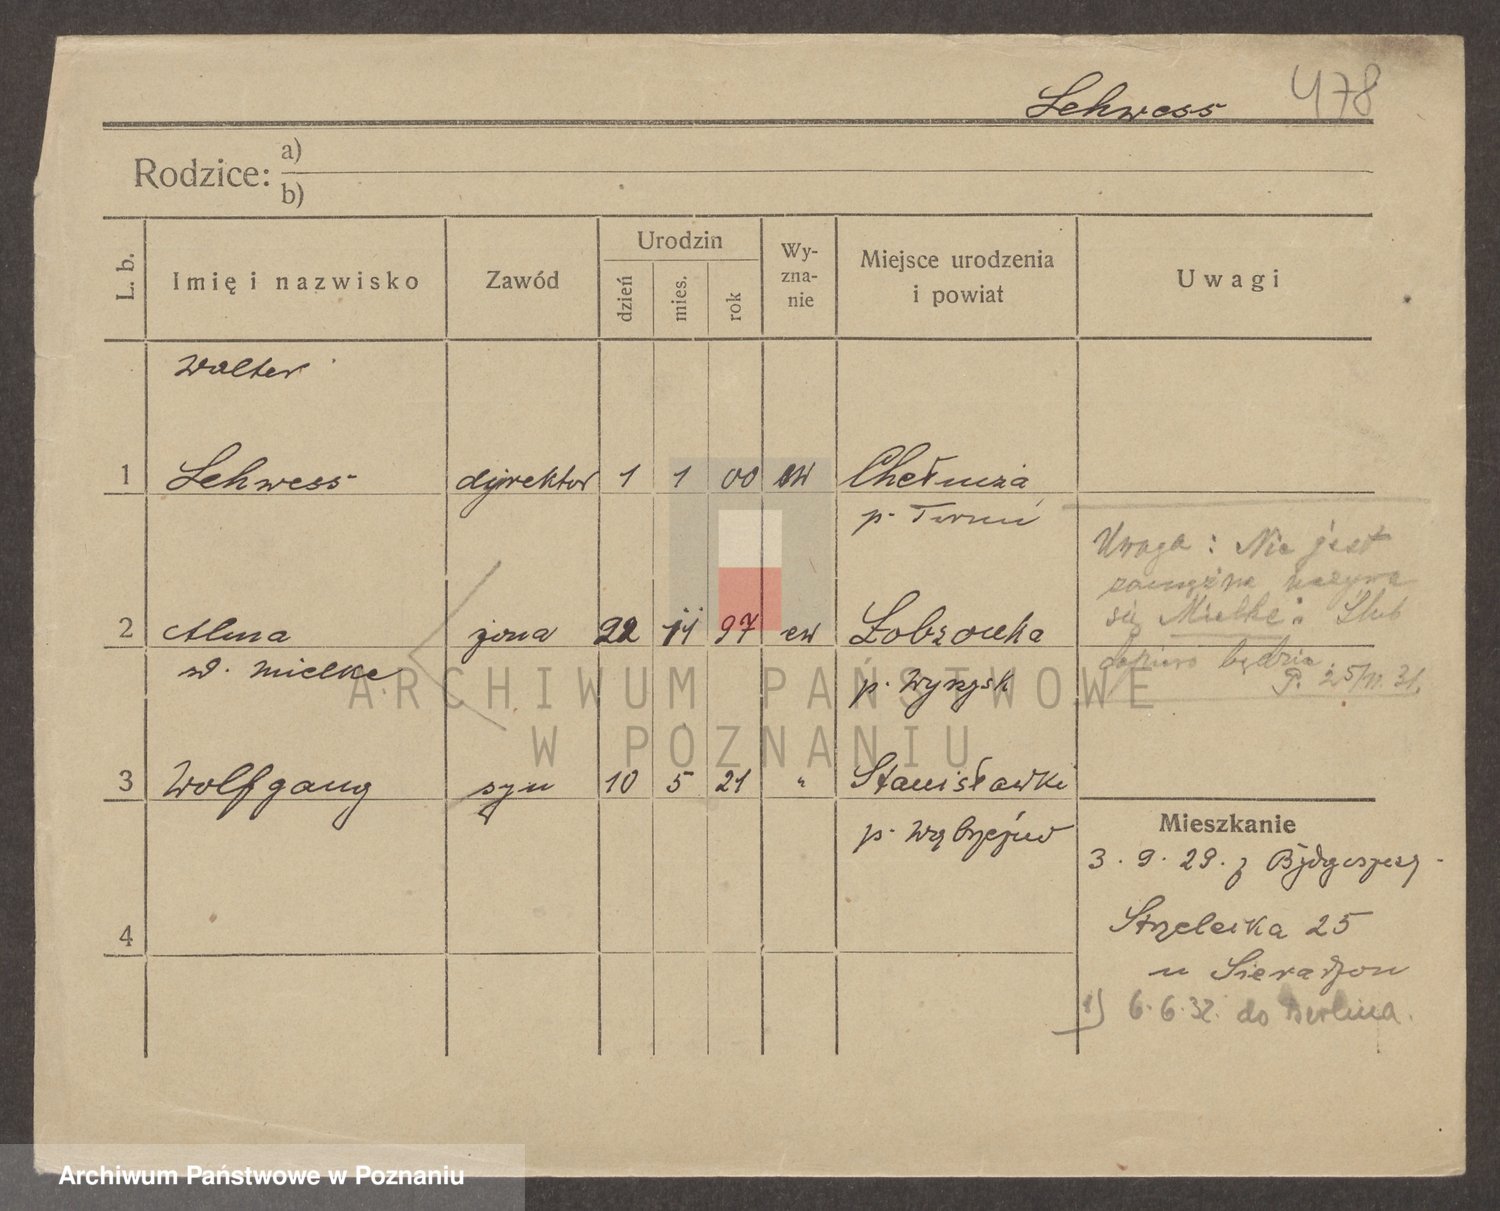 Lehwess 478
Rodzice: a)
b)
L. b. Imię i nazwisko Zawód Urodzin dzień mies. rok Wy-zna-nie Miejsce urodzenia i powiat Uwagi
Walter
1 Lehwess dyrektor 1 1 00 ew Chełmża
p. Toruń
Uwaga: Nie jest
zamężna nazywa
się Mielke. Ślub
2 Alma żona 22 11 97 ew Łobżonka
dopiero będzie.
P. 25/11. 31.
w. Mielke p. Wyrzysk
3 Wolfgang syn 10 5 21 " Stanisławki
p. Wąbrzeźno
Mieszkanie
3. 9. 29. z Bydgoszczy
4
Strzelecka 25
u Sieradzon
1) 6. 6. 32. do Berlina.
ARCHIWUM PAŃSTWOWE
W POZNANIU
Archiwum Państwowe w Poznaniu